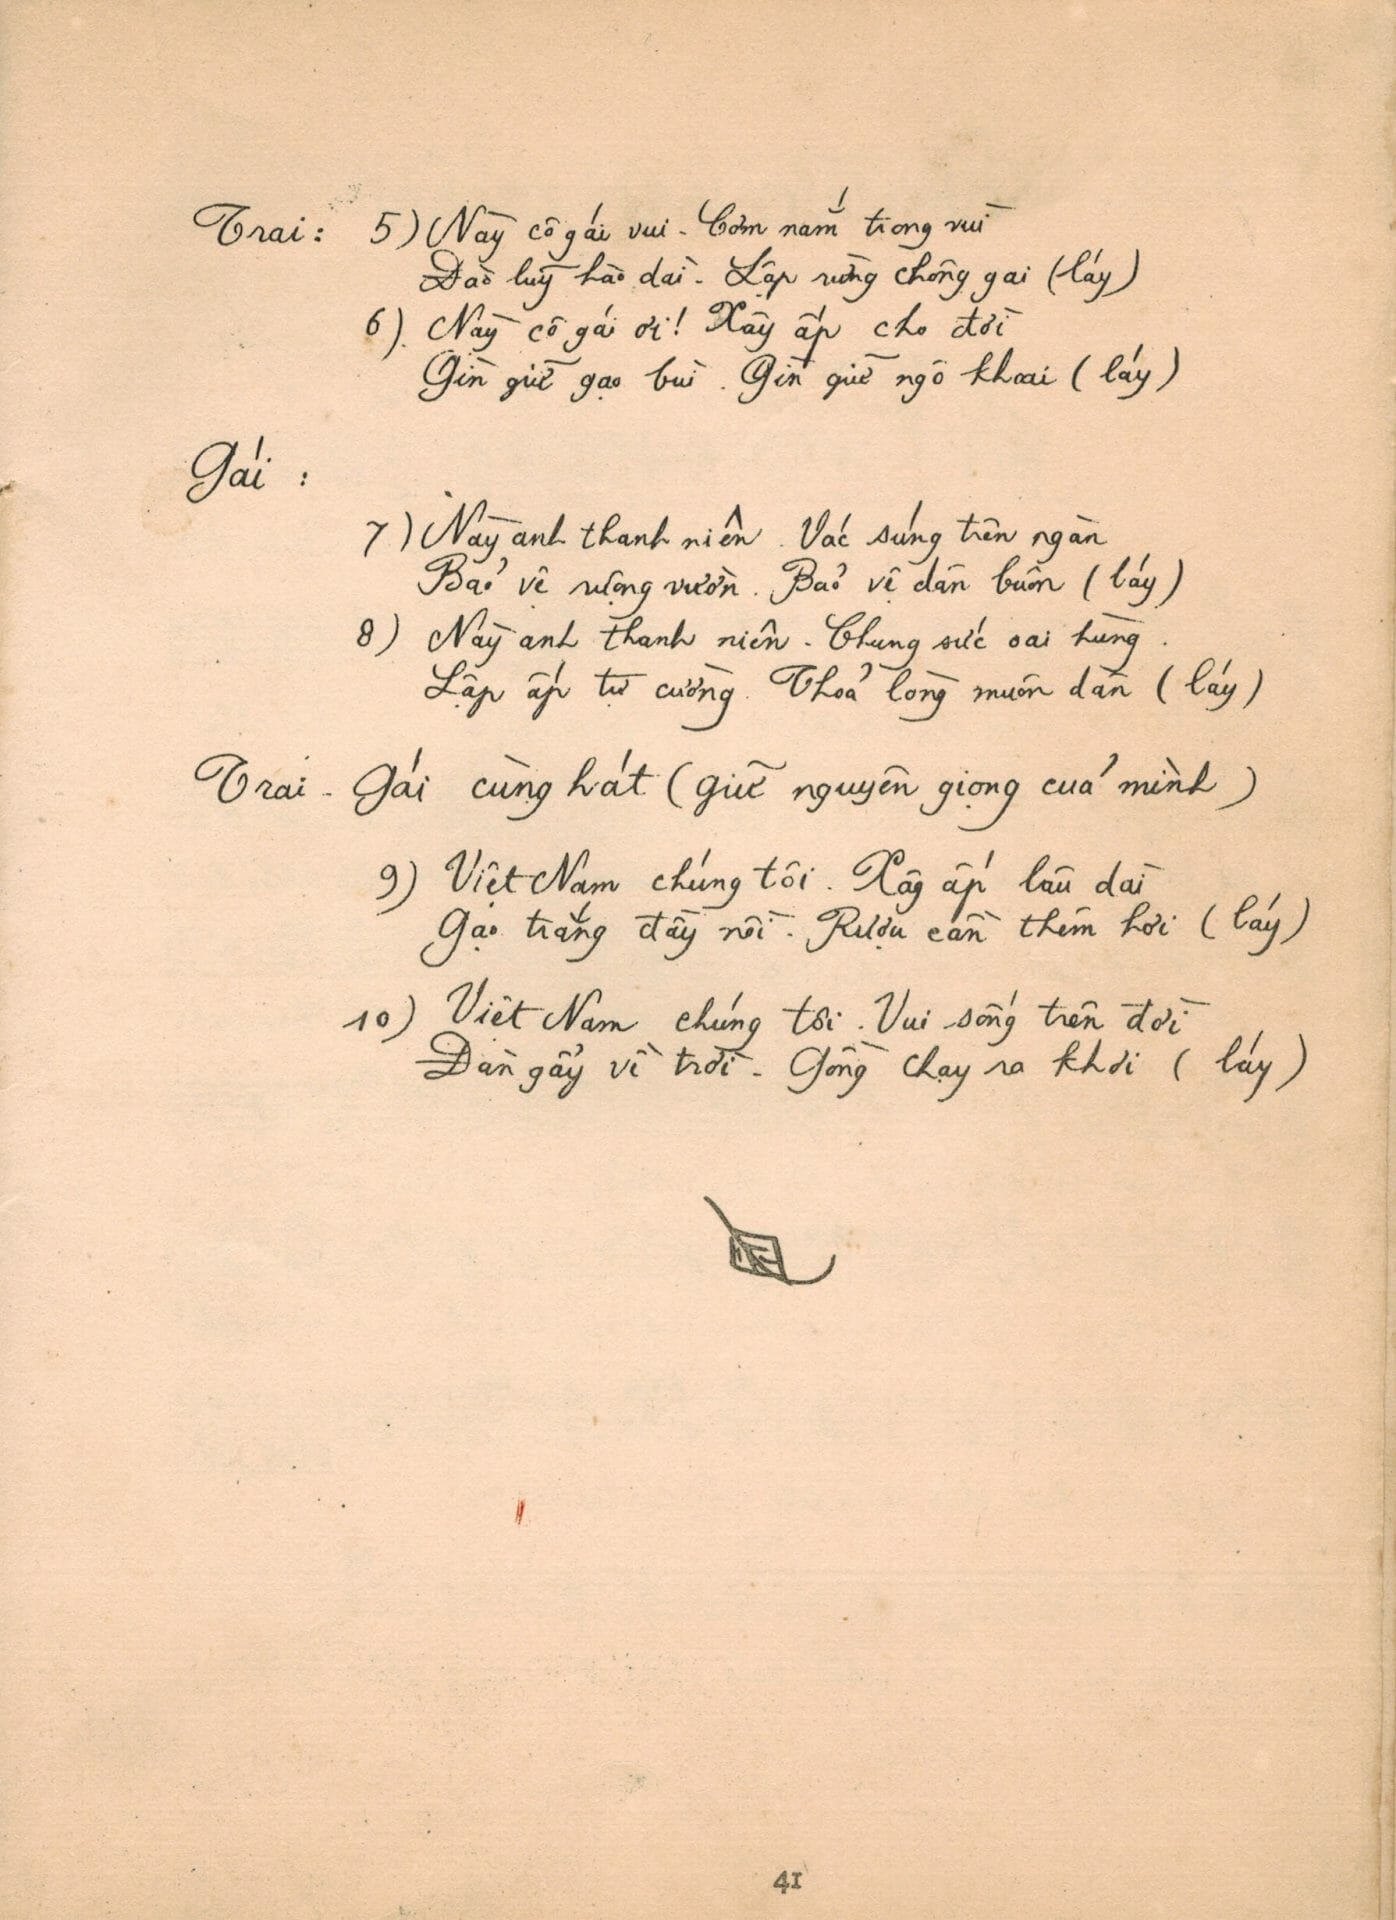 Trai: 5) Này cô gái vui - Cơm nắm trong vùi
Đào luỹ hào dài - Lập rừng chông gai (láy)
6). Này cô gái ơi! Xây ấp cho đời
Gìn giữ gạo bùi. Gìn giữ ngô khoai (láy)
Gái :
7) Này anh thanh niên. Vác súng trên ngàn
Bảo vệ ruộng vườn. Bảo vệ dân buôn (láy)
8) Này anh thanh niên - Chung sức oai hùng.
Lập ấp tự cường. Thoả lòng muôn dân (láy)
Trai - Gái cùng hát (giữ nguyên giọng của mình)
9) Việt Nam chúng tôi. Xây ấp lâu dài
Gạo trắng đầy nồi - Rượu cần thêm hơi (láy)
10) Việt Nam chúng tôi. Vui sống trên đời
Đàn gẩy về trời - Gồng chạy ra khơi (láy)
41